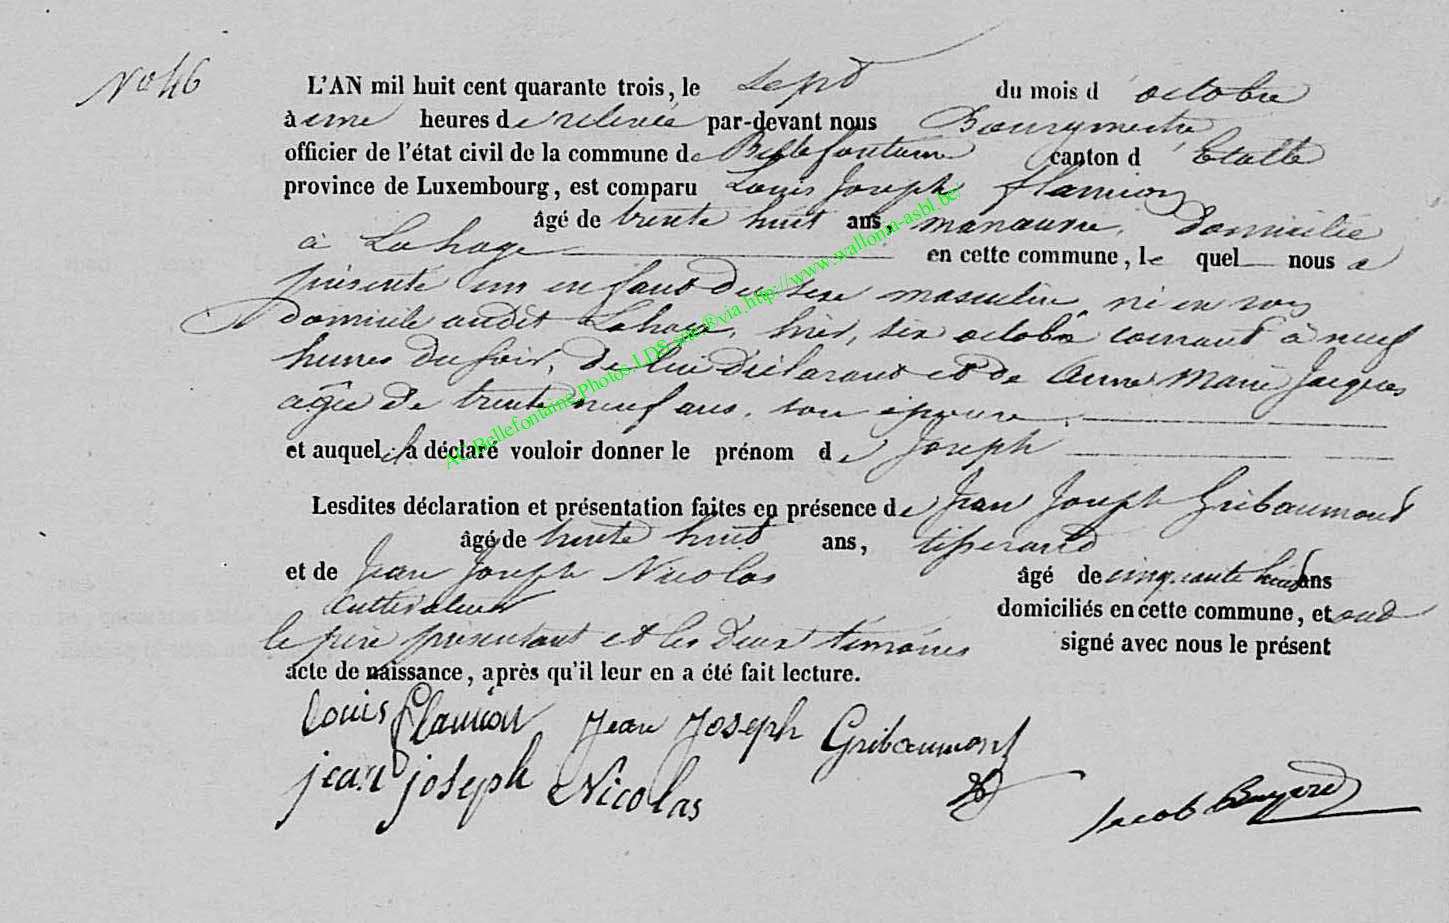 No 46
L'AN mil huit cent quarante trois, le sept du mois d'octobre
à une heures de relevée par-devant nous Bourgmestre,
officier de l'état civil de la commune de Bellefontaine canton d'Etalle
province de Luxembourg, est comparu Louis Joseph Flamion
âgé de trente huit ans, manœuvre, domicilié
à Lahage en cette commune, lequel nous a
présenté un enfant du sexe masculin, né en son
domicile audit Lahage, hier, six octobre courant à neuf
heures du soir, de lui déclarant et de Anne Marie Jacques
agée de trente neuf ans, son épouse,
et auquel il a déclaré vouloir donner le prénom de Joseph
Lesdites déclaration et présentation faites en présence de Jean Joseph Gribaumont
âgé de trente huit ans, tisserand
et de Jean Joseph Nicolas âgé de cinquante huit ans
cultivateur domiciliés en cette commune, et ont
le père présentant et les deux témoins signé avec nous le présent
acte de naissance, après qu'il leur en a été fait lecture.
Louis Flamion Jean Joseph Gribaumont
jean joseph Nicolas
Jacob
AC Bellefontaine Photos LDS sites ®via http://www.wallonia-asbl.be/